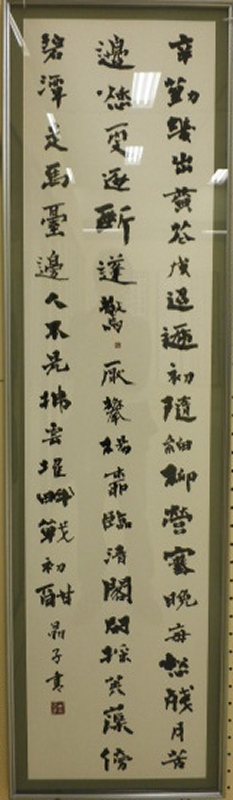 辛勤幾出黃花戍迢遞初隨細柳營塞晚每愁殘月苦
邊愁更逐斷蓬驚厭攀楊臨清閣閑採芙蕖傍
碧潭走馬臺邊人不見拂雲堆畔戰初酣晶子書